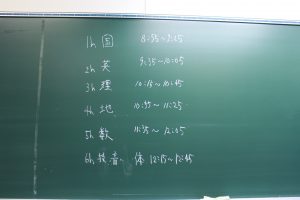 1h 国 8:55~9:25
2h 英 9:35~10:05
3h 理 10:15~10:45
4h 地 10:55~11:25
5h 数 11:35~12:05
6h 技音、体 12:15~12:45